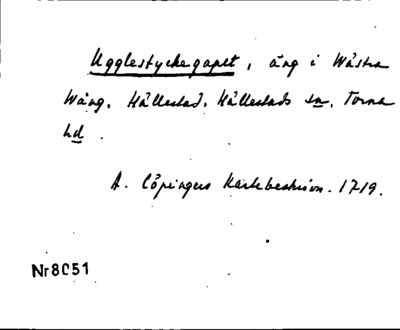 Ugglestyckegapet, äng i Wästra
Wång. Hällestad. Hällestads sn. Torna
hd.
A. Cöpingers Kartebeskrivn. 1719.
Nr8051